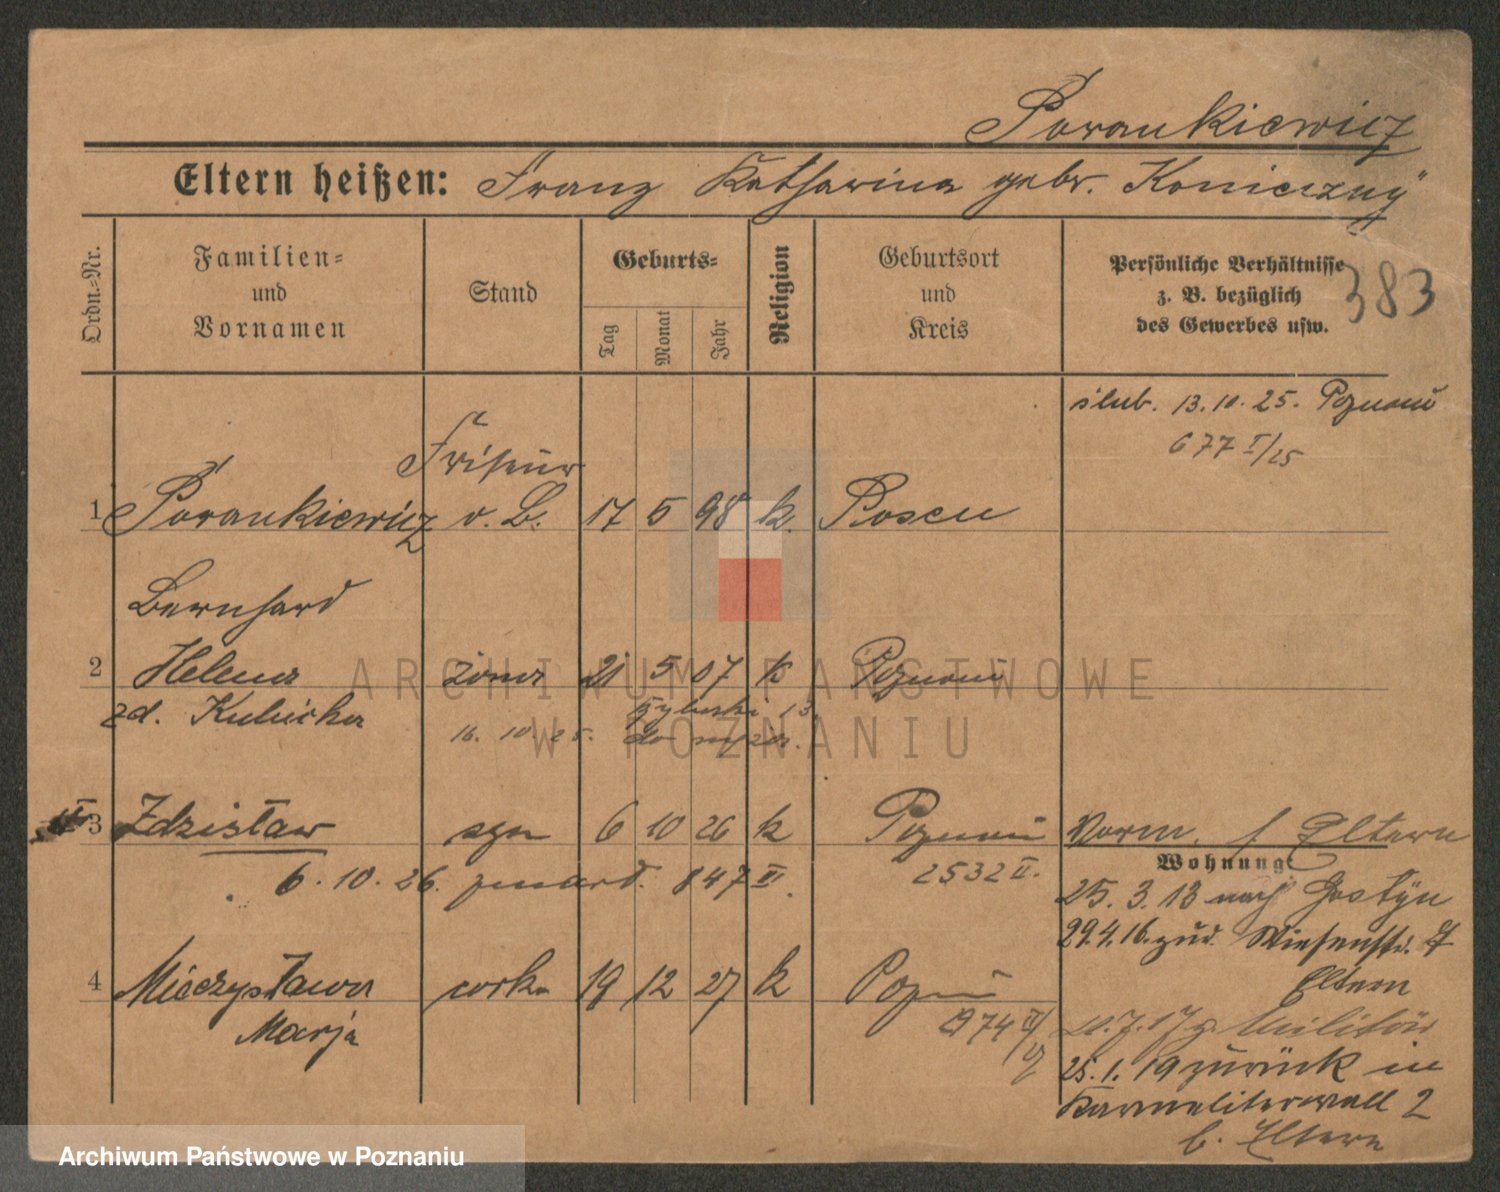 Porankiewicz
Eltern heißen: Franz Katharina gebr. Koniczny
Ordn.=Nr.
Familien=
und
Vornamen
Stand
Geburts=
Tag
Monat
Jahr
Religion
Geburtsort
und
Kreis
Persönliche Verhältnisse
z. B. bezüglich
des Gewerbes usw.
383
ślub. 13.10.25. Poznań
677 I/25
Friseur
1 Porankiewicz v. B. 17 5 98 k. Posen
Bernhard
2 Helena żona 21 5 07 k Poznań
zd. Kubicka
16. 10 25.
3 Zdzisław syn 6 10 26 k Poznań
Vorm. f Eltern
6. 10. 26. 847 VI.
2532 II.
Wohnung:
25. 3. 13 nach Gostyn
29.4.16. zud. Wiesenstr. 7
Eltern
4 Mieczysława córka 19 12 27 k Poznań
Marja
2974 III/27
20.7.17 z. Militär
25.1.19 zurück in
Karmeliterwall 2
b. Eltern
ARCHIWUM PAŃSTWOWE
W POZNANIU
Archiwum Państwowe w Poznaniu